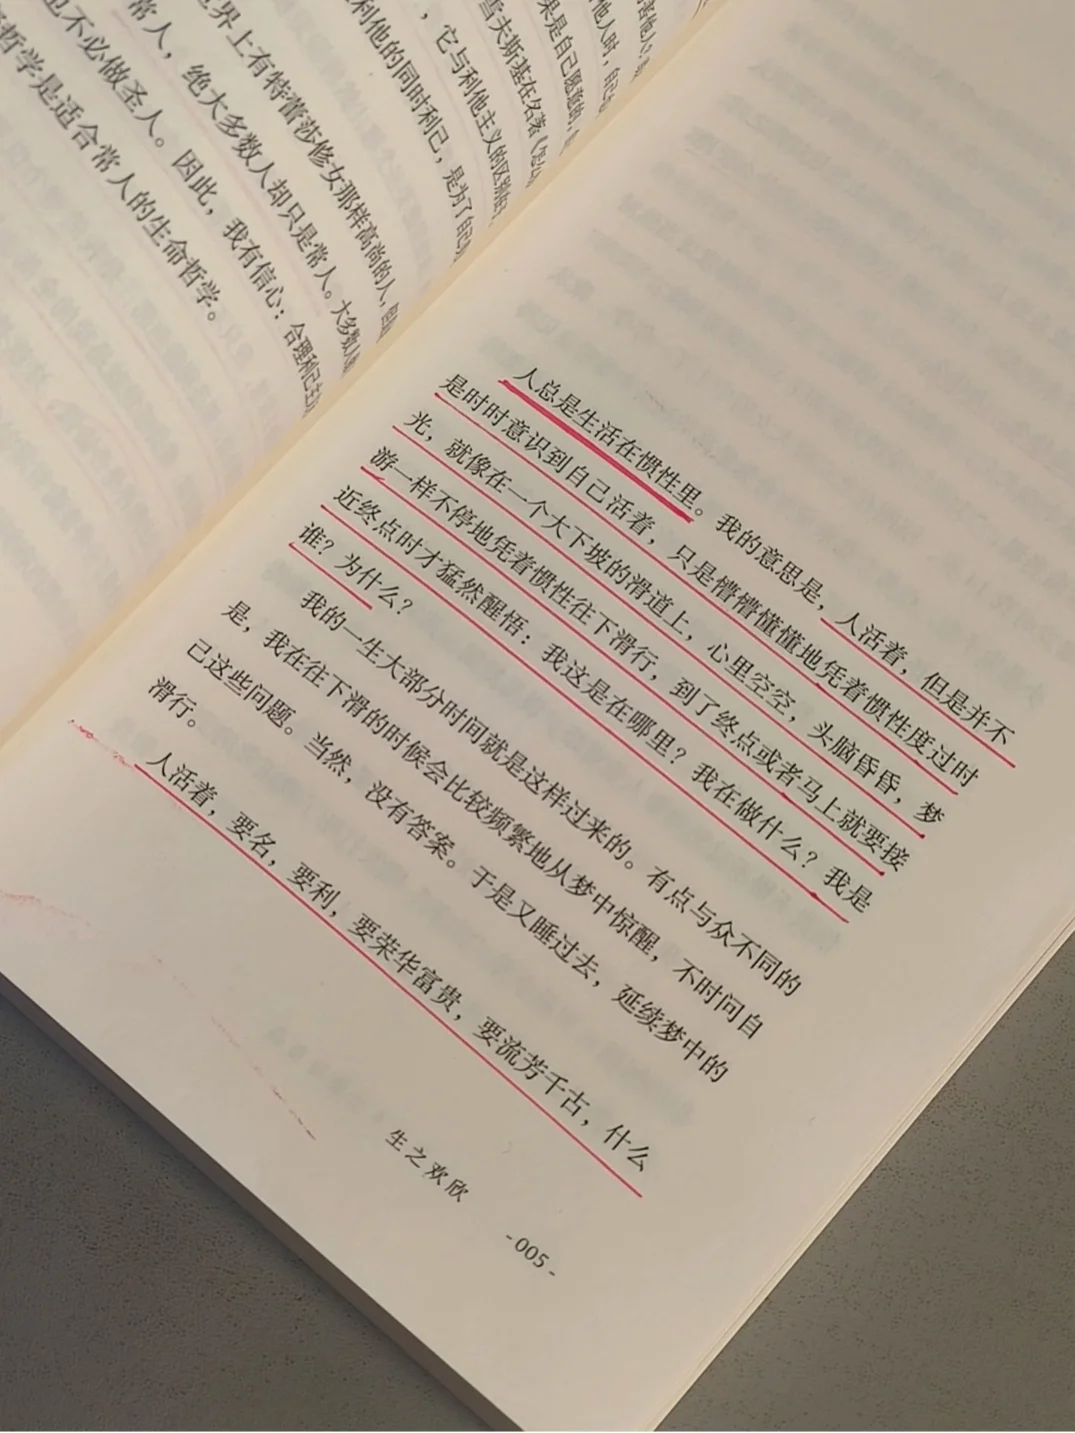 害他人？
他人时，自己
果是自己愿意的，
雪夫斯基在名著《怎么
，它与利他主义的区别
利他的同时利己，是为了自己
世界上有特蕾莎修女那样高尚的人，但
常人，绝大多数人却只是常人。大多数
也不必做圣人。因此，我有信心：合理利己主
哲学是适合常人的生命哲学。
人总是生活在惯性里。我的意思是，人活着，但是并不
是时时意识到自己活着，只是懵懵懂懂地凭着惯性度过时
光，就像在一个大下坡的滑道上，心里空空，头脑昏昏，梦
游一样不停地凭着惯性往下滑行，到了终点或者马上就要接
近终点时才猛然醒悟：我这是在哪里？我在做什么？我是
谁？为什么？
我的一生大部分时间就是这样过来的。有点与众不同的
是，我在往下滑的时候会比较频繁地从梦中惊醒，不时问自
己这些问题。当然，没有答案。于是又睡过去，延续梦中的
滑行。
人活着，要名，要利，要荣华富贵，要流芳千古，什么
生之欢欣
-005-